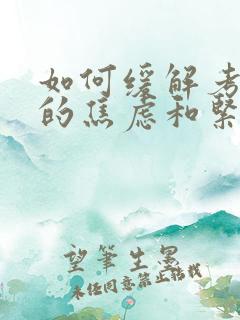 如何缓解考
的焦虑和紧
望笔生墨
未经同意禁止转载